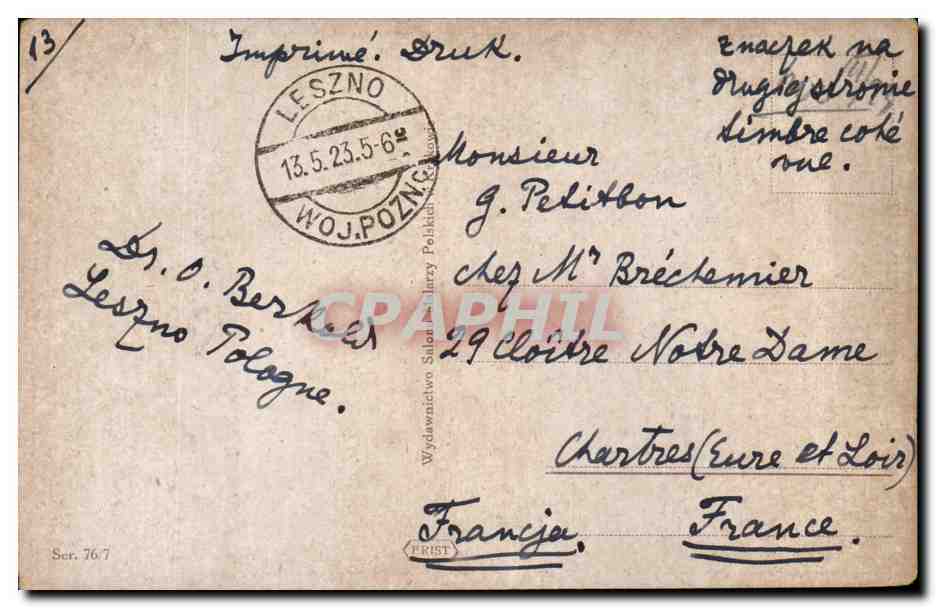 13/
Imprimé. Druk.
znaczek na
drugiej stronie
timbre coté
vue.
LESZNO
13.5.23.5-6
WOJ.POZN.
Monsieur
G. Petitbon
chez Mr Bréchemier
29 Cloître Notre Dame
Chartres (Eure et Loir)
Francja. France.
Dr. O. Berkold
Leszno Pologne.
Wydawnictwo Salonu Malarzy Polskich
CPARHIL
Ser. 76/7
PRIST